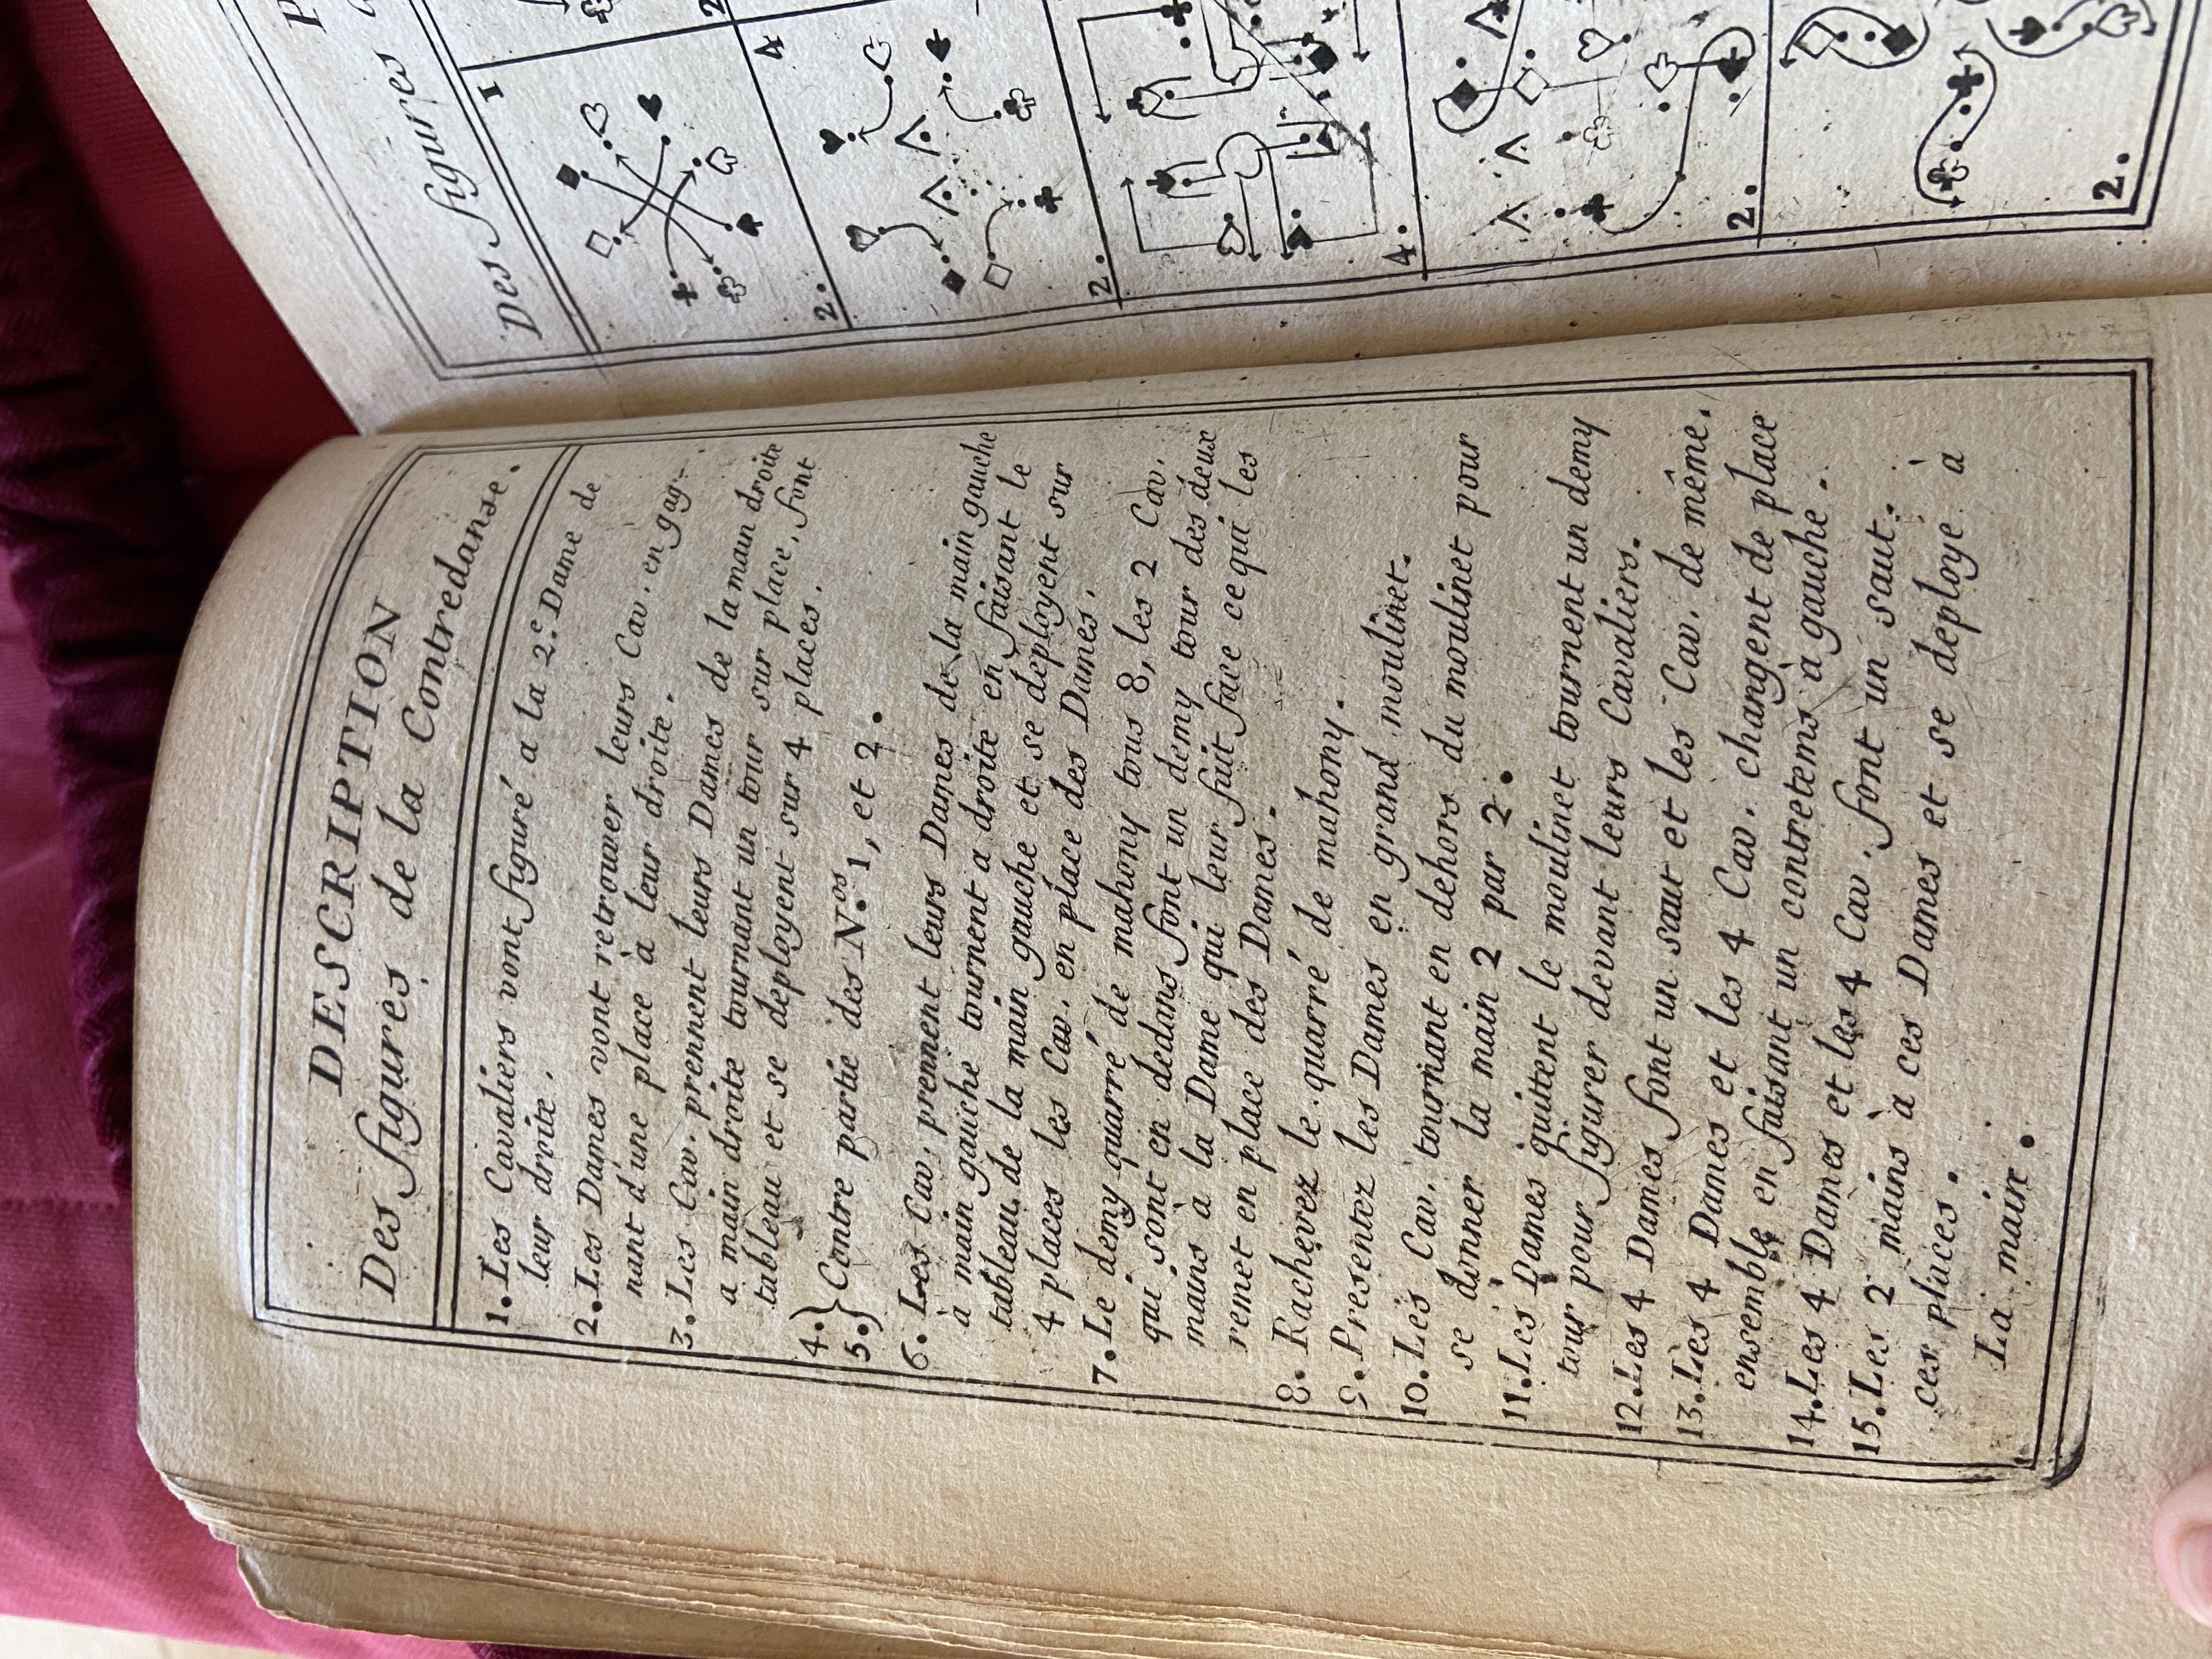 DESCRIPTION
Des figures de la Contredanse.
1. Les Cavaliers vont figuré a la 2.e Dame de
leur droite.
2. Les Dames vont retrouver leurs Cav. en gag-
nant d'une place à leur droite.
3. Les Cav. prennent leurs Dames de la main droite
a main droite tournant un tour sur place, font
tableau et se deployent sur 4 places.
4.}
5.} Contre partie des N.os 1, et 2.
6. Les Cav. prennent leurs Dames de la main gauche
à main gauche tournent a droite en faisant le
tableau de la main gauche et se deployent sur
4 places les Cav. en place des Dames.
7. Le demy quarré de mahony tous 8, les 2 Cav.
qui sont en dedans font un demy tour des deux
mains à la Dame qui leur fait face ce qui les
remet en place des Dames.
8. Rachevez le quarré de mahony.
9. Presentez les Dames en grand moulinet.
10. Les Cav. tournant en dehors du moulinet pour
se donner la main 2 par 2.
11. Les Dames quittent le moulinet tournent un demy
tour pour figurer devant leurs Cavaliers.
12. Les 4 Dames font un saut et les Cav. de même.
13. Les 4 Dames et les 4 Cav. changent de place
ensemble en faisant un contretems à gauche.
14. Les 4 Dames et les 4 Cav. font un saut.
15. Les 2 mains à ces Dames et se deploye à
ces places.
La main.
Des figures
1
2
2.
4
2.
4.
2.
2.